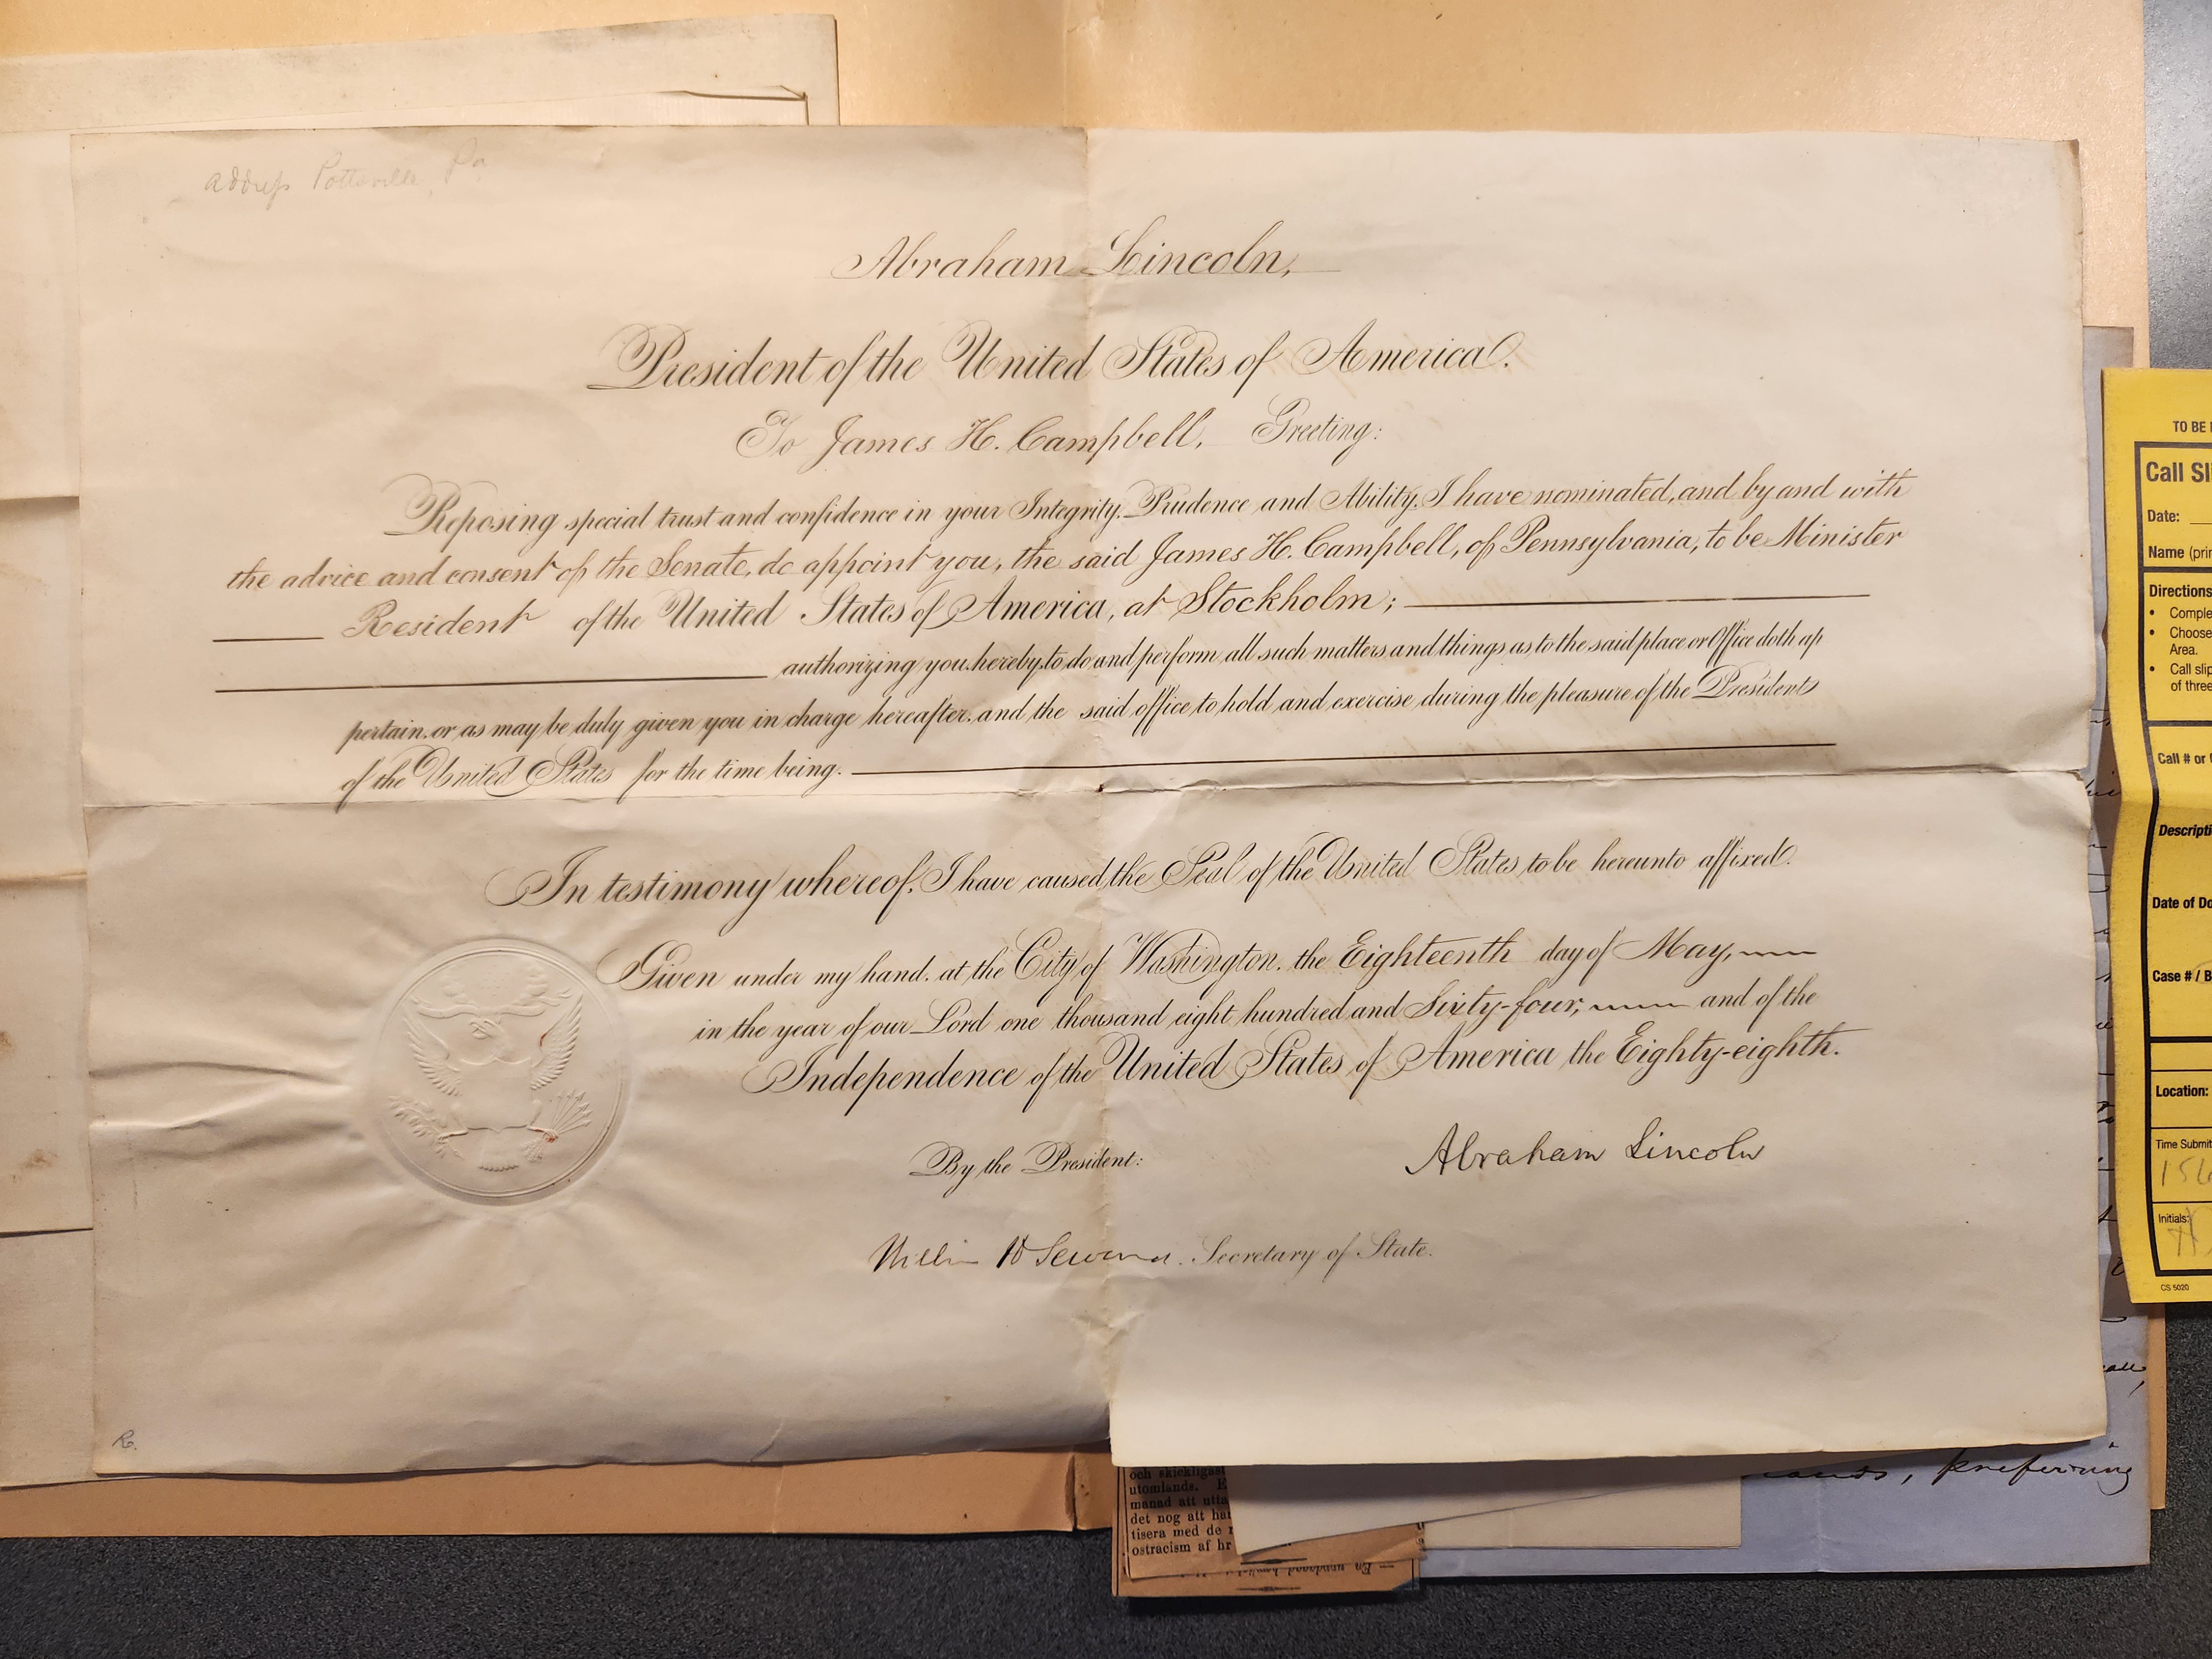 address Pottsville, Pa
Abraham Lincoln,
President of the United States of America.
To James H. Campbell, Greeting:
Reposing special trust and confidence in your Integrity, Prudence and Ability, I have nominated, and by and with
the advice and consent of the Senate, do appoint you, the said James H. Campbell, of Pennsylvania, to be Minister
Resident of the United States of America, at Stockholm;
authorizing you, hereby, to do and perform all such matters and things as to the said place or Office doth ap
pertain, or as may be duly given you in charge hereafter, and the said office to hold and exercise during the pleasure of the President
of the United States for the time being.
In testimony whereof, I have caused the Seal of the United States to be hereunto affixed.
Given under my hand, at the City of Washington, the Eighteenth day of May,
in the year of our Lord one thousand eight hundred and Sixty-four, and of the
Independence of the United States of America the Eighty-eighth.
By the President:
Abraham Lincoln
William H Seward. Secretary of State.
R.
och skickligast
utomlands. E
månad att utta
det nog att har
tisera med de r
ostracism af hr
, preferring
TO BE
Call Sl
Date:
Name (prin
Directions
• Comple
• Choose
Area.
• Call slip
of three
Call # or
Descripti
Date of Do
Case # / B
Location:
Time Submit
Initials:
CS 5020